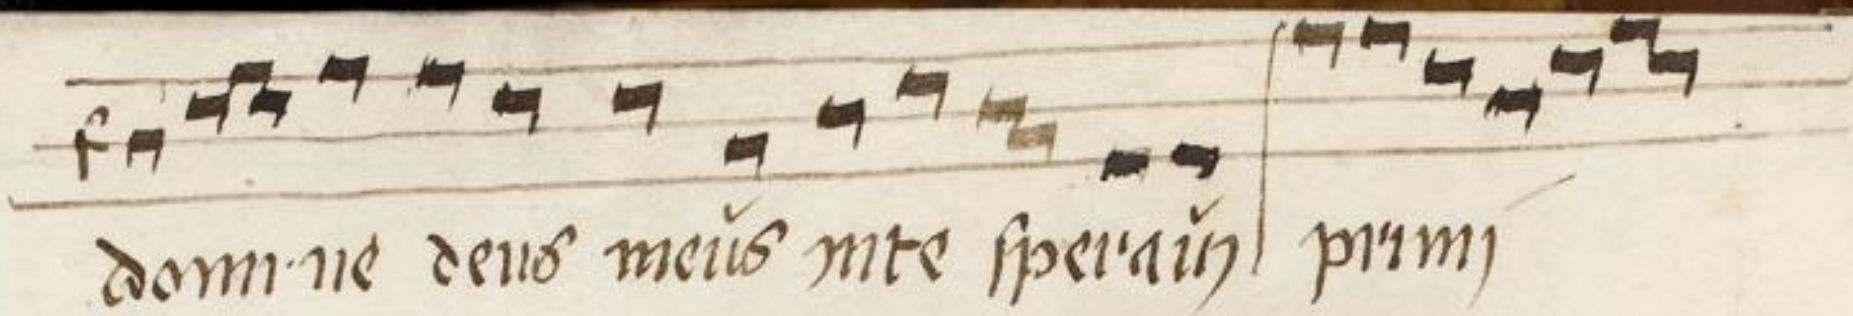 domine deus meus inte speraui primi